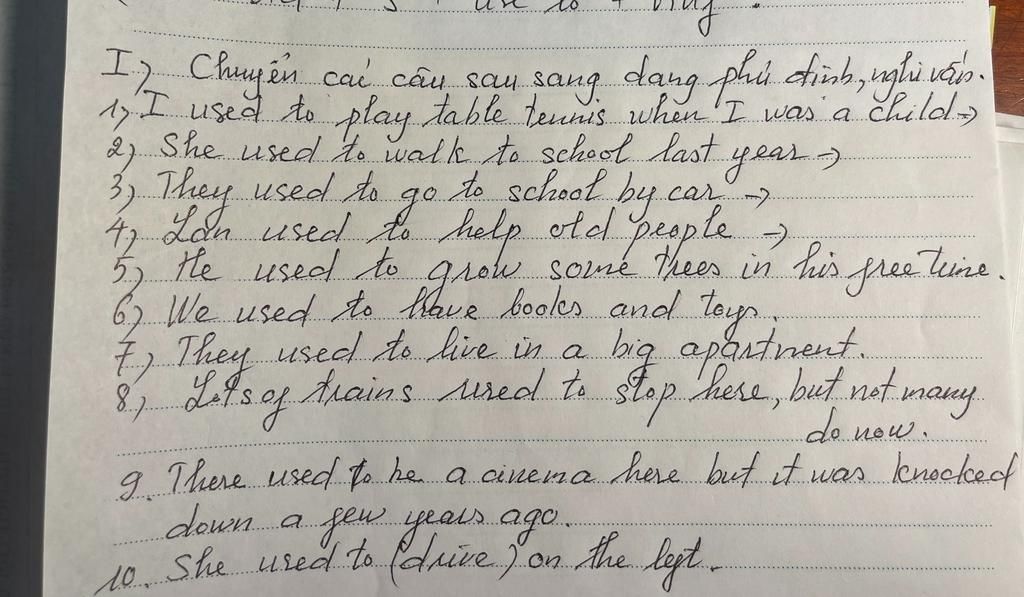 + use to + Ving.
I) Chuyển các câu sau sang dạng phủ định, nghi vấn.
1) I used to play table tennis when I was a child →
2) She used to walk to school last year →
3) They used to go to school by car →
4) Lan used to help old people →
5) He used to grow some trees in his free time.
6) We used to have books and toys.
7) They used to live in a big apartment.
8) Lots of trains used to stop here, but not many
do now.
9. There used to be a cinema here but it was knocked
down a few years ago.
10. She used to (drive) on the left.